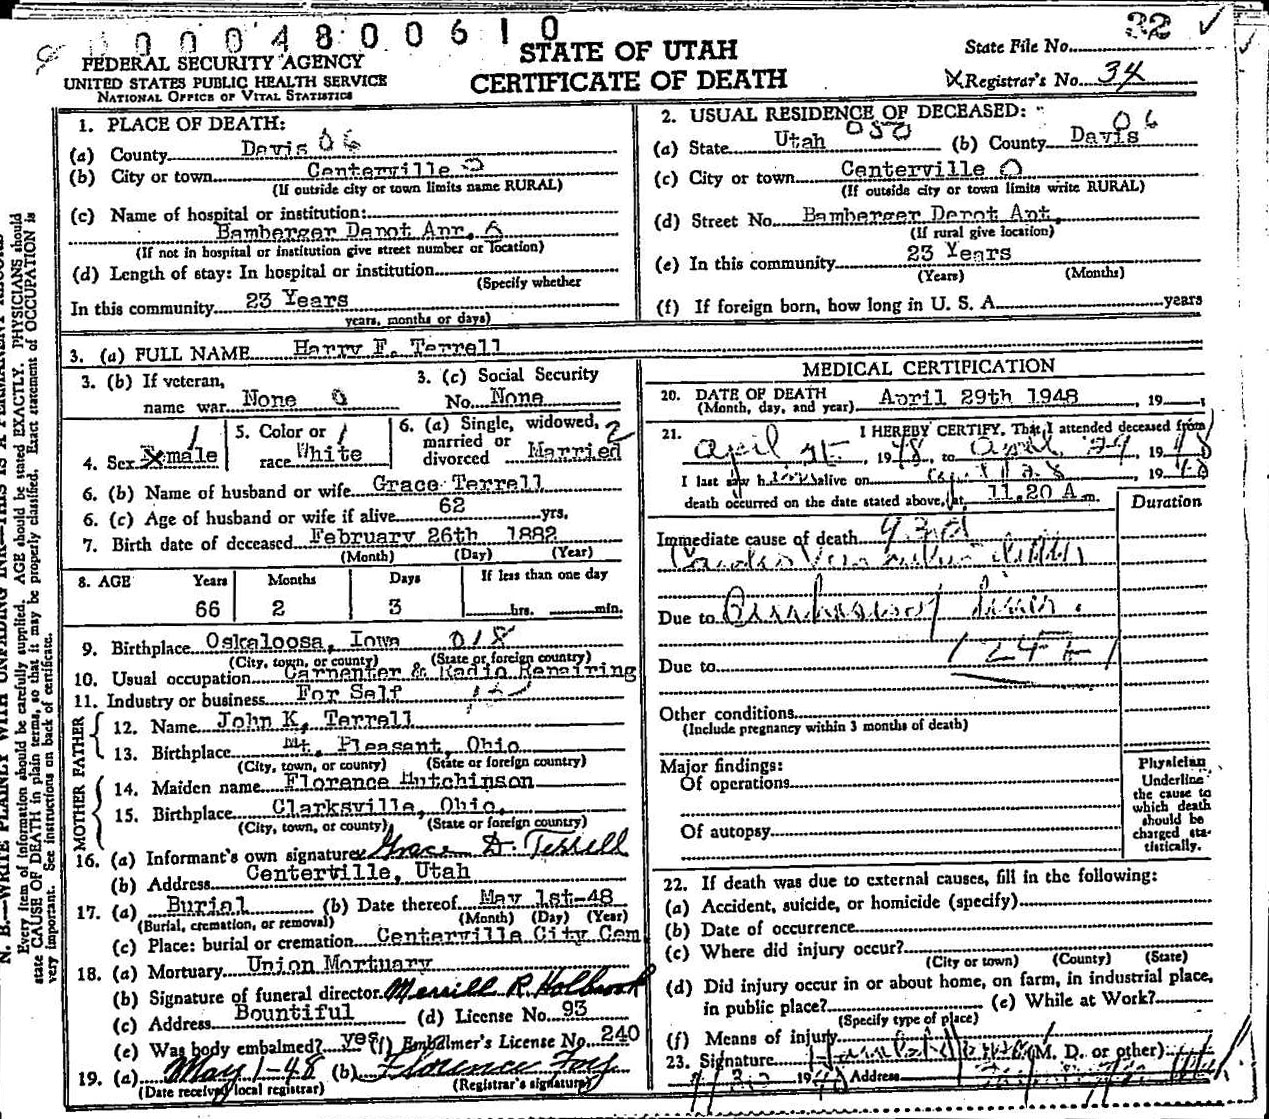 0 0 0 4 8 0 0 6 1 0
32
FEDERAL SECURITY AGENCY
UNITED STATES PUBLIC HEALTH SERVICE
NATIONAL OFFICE OF VITAL STATISTICS
STATE OF UTAH
CERTIFICATE OF DEATH
State File No.
Registrar's No. 34
1. PLACE OF DEATH:
(a) County Davis 06
(b) City or town Centerville 0
(If outside city or town limits name RURAL)
(c) Name of hospital or institution:
Bamberger Depot Apr.
(If not in hospital or institution give street number or location)
(d) Length of stay: In hospital or institution
(Specify whether
In this community 23 Years
years, months or days)
2. USUAL RESIDENCE OF DECEASED:
(a) State Utah 050 (b) County Davis 06
(c) City or town Centerville 0
(If outside city or town limits write RURAL)
(d) Street No. Bamberger Depot Apt.
(If rural give location)
(e) In this community 23 Years
(Years) (Months)
(f) If foreign born, how long in U. S. A. years
3. (a) FULL NAME Harry F. Terrell
3. (b) If veteran,
name war None 0
3. (c) Social Security
No. None
4. Sex male 1
5. Color or
race White 1
6. (a) Single, widowed,
married or
divorced Married 2
6. (b) Name of husband or wife Grace Terrell
6. (c) Age of husband or wife if alive 62 yrs.
7. Birth date of deceased February 26th 1882
(Month) (Day) (Year)
8. AGE Years Months Days If less than one day
66 2 3 hrs. min.
9. Birthplace Oskaloosa, Iowa 018
(City, town, or county) (State or foreign country)
10. Usual occupation Carpenter & Radio Repairing
11. Industry or business For Self
FATHER
12. Name John K. Terrell
13. Birthplace Mt. Pleasant, Ohio
(City, town, or county) (State or foreign country)
MOTHER
14. Maiden name Florence Hutchinson
15. Birthplace Clarksville, Ohio,
(City, town, or county) (State or foreign country)
16. (a) Informant's own signature Grace D. Terrell
(b) Address Centerville, Utah
17. (a) Burial (b) Date thereof May 1st-48
(Burial, cremation, or removal) (Month) (Day) (Year)
(c) Place: burial or cremation Centerville City Cem
18. (a) Mortuary Union Mortuary
(b) Signature of funeral director Merrill R. Holbrook
(c) Address Bountiful (d) License No. 93
(e) Was body embalmed? yes (f) Embalmer's License No. 240
19. (a) May 1-48 (b) Florence Foy
(Date received local registrar) (Registrar's signature)
MEDICAL CERTIFICATION
20. DATE OF DEATH
(Month, day, and year) April 29th 1948, 19
21. I HEREBY CERTIFY, That I attended deceased from
April, 1948, to April 29, 1948
I last saw h alive on April 28, 1948
death occurred on the date stated above, at 11.20 A m.
Duration
Immediate cause of death 93d
Due to
Due to
Other conditions
(Include pregnancy within 3 months of death)
Major findings:
Of operations
Of autopsy
Physician
Underline
the cause to
which death
should be
charged sta-
tistically.
22. If death was due to external causes, fill in the following:
(a) Accident, suicide, or homicide (specify)
(b) Date of occurrence
(c) Where did injury occur?
(City or town) (County) (State)
(d) Did injury occur in or about home, on farm, in industrial place,
in public place? (e) While at Work?
(Specify type of place)
(f) Means of injury
23. Signature (M. D. or other)
19 Address
N. B.—WRITE PLAINLY WITH UNFADING INK—THIS IS A PERMANENT RECORD
Every item of information should be carefully supplied. AGE should be stated EXACTLY. PHYSICIANS should
state CAUSE OF DEATH in plain terms, so that it may be properly classified. Exact statement of OCCUPATION is
very important. See instructions on back of certificate.